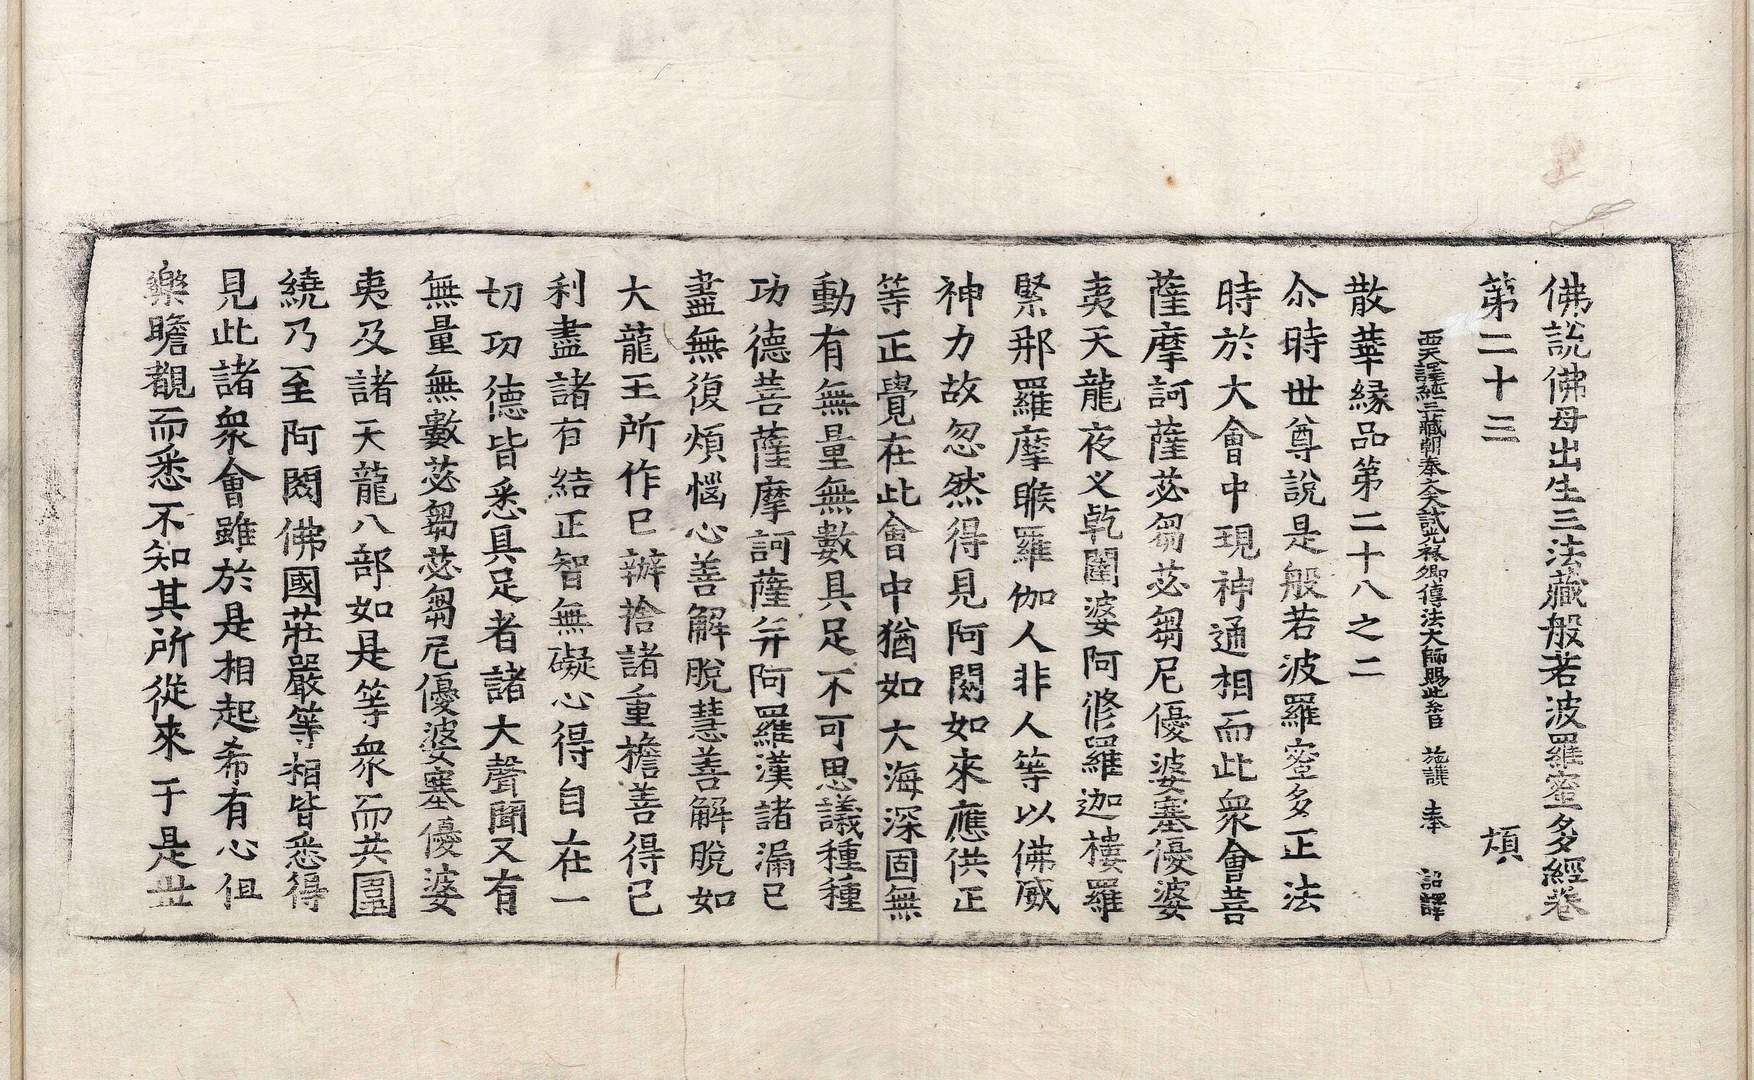 佛說佛母出生三法藏般若波羅蜜多經卷
第二十三　煩
西天譯經三藏朝奉大夫試光祿卿傳法大師賜紫臣　施護　奉　詔譯
散華緣品第二十八之二
尒時世尊說是般若波羅蜜多正法
時於大會中現神通相而此衆會菩
薩摩訶薩苾芻苾芻尼優婆塞優婆
夷天龍夜叉乾闥婆阿修羅迦樓羅
緊那羅摩睺羅伽人非人等以佛威
神力故忽然得見阿閦如來應供正
等正覺在此會中猶如大海深固無
動有無量無數具足不可思議種種
功德菩薩摩訶薩并阿羅漢諸漏已
盡無復煩惱心善解脫慧善解脫如
大龍王所作已辦捨諸重擔善得已
利盡諸有結正智無礙心得自在一
切功德皆悉具足者諸大聲聞又有
無量無數苾芻苾芻尼優婆塞優婆
夷及諸天龍八部如是等衆而共圍
繞乃至阿閦佛國莊嚴等相皆悉得
見此諸衆會雖於是相起希有心但
樂瞻覩而悉不知其所從來于是世